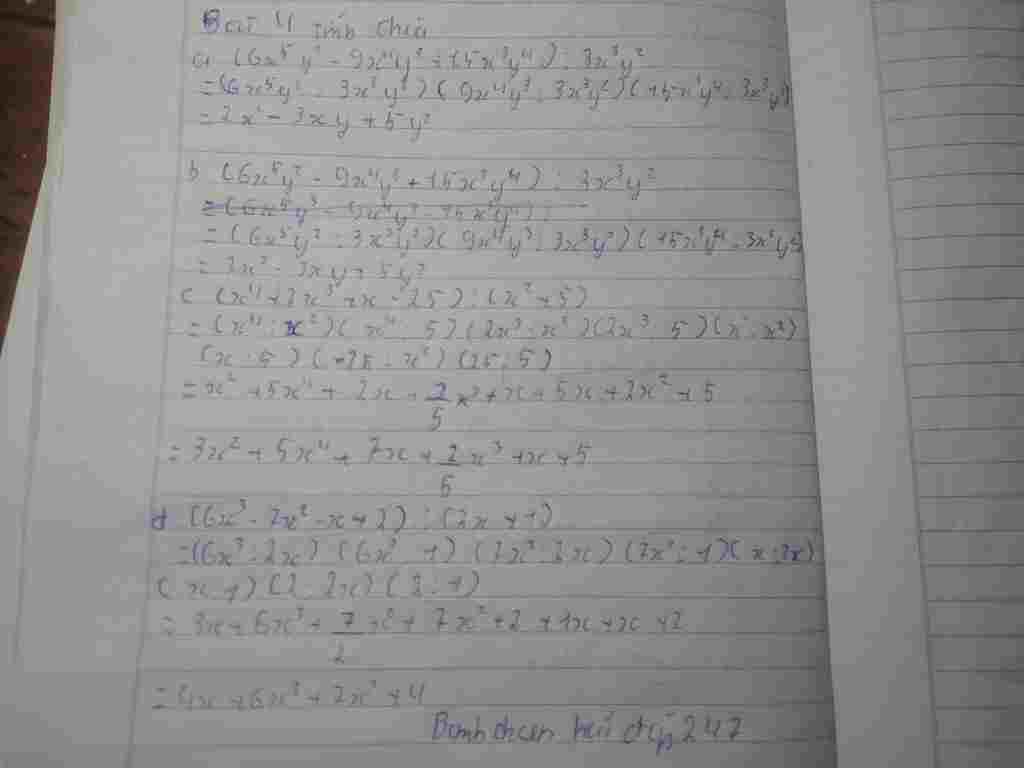 Bài 4 tính chia
a (6x⁵y² - 9x⁴y³ + 15x³y⁴) : 3x³y²
= (6x⁵y² : 3x³y²) (9x⁴y³ : 3x³y²) (+15x³y⁴ : 3x³y²)
= 2x² - 3xy + 5y²
b (6x⁵y² - 9x⁴y³ + 15x³y⁴) : 3x³y²
= (6x⁵y² : 3x³y²) (9x⁴y³ : 3x³y²) (+15x³y⁴ : 3x³y²
= 2x² - 3xy + 5y²
c (x⁴ + 2x³ + x - 25) : (x² + 5)
= (x⁴ : x²) (x⁴ : 5) (2x³ : x²) (2x³ : 5) (x : x²)
(x : 5) (-25 : x²) (25 : 5)
= x² + 5x⁴ + 2x + 2/5 x³ + x + 5x + 2x² + 5
= 3x² + 5x⁴ + 7x + 2/5 x³ + x + 5
d (6x³ - 7x² - x + 2) : (2x + 1)
= (6x³ : 2x) (6x³ : 1) (7x² : 2x) (7x² : 1) (x : 2x)
(x : 1) (2 : 2x) (2 : 1)
= 3x + 6x³ + 7/2 x² + 7x² + 2 + 1x + x + 2
= 4x + 6x³ + 7x² + 4
247